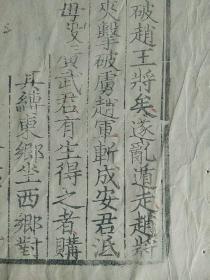 破趙王將矣遂亂遁走趙將
夾擊破虜趙軍斬成安君泜
毋殺廣武君有生得之者購
其縛東鄉坐西鄉對